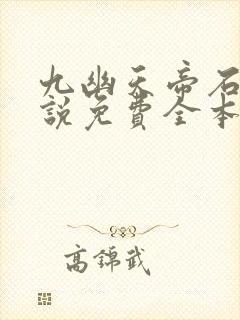 九幽天帝石
說免費全本
高錦武